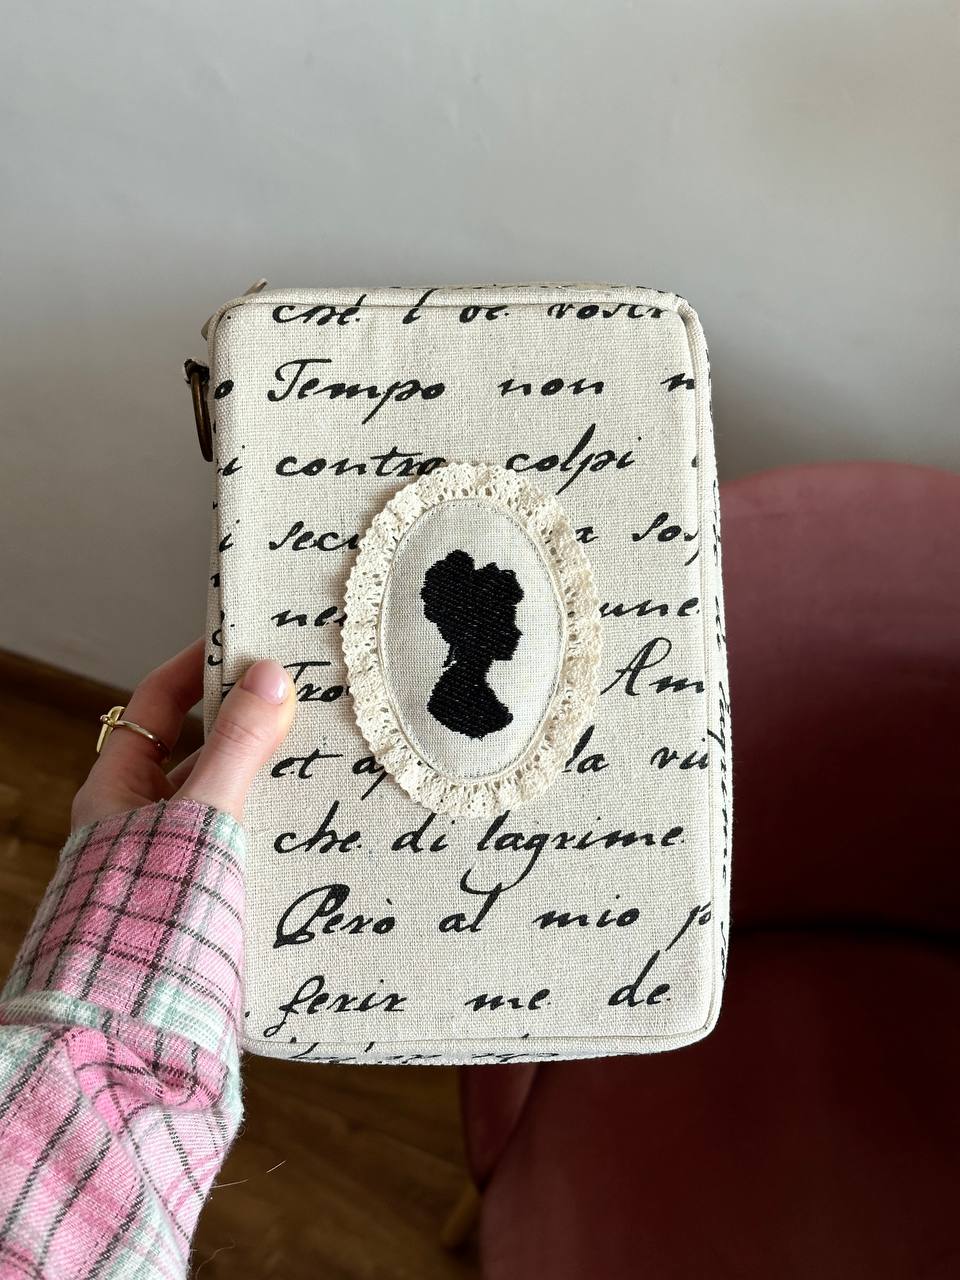 che i be vostr
o Tempo non
i contra colpi
i secu a sos
ne une
Tro Am
et ap la vi
che di lagrime
Però al mio p
ferir me de